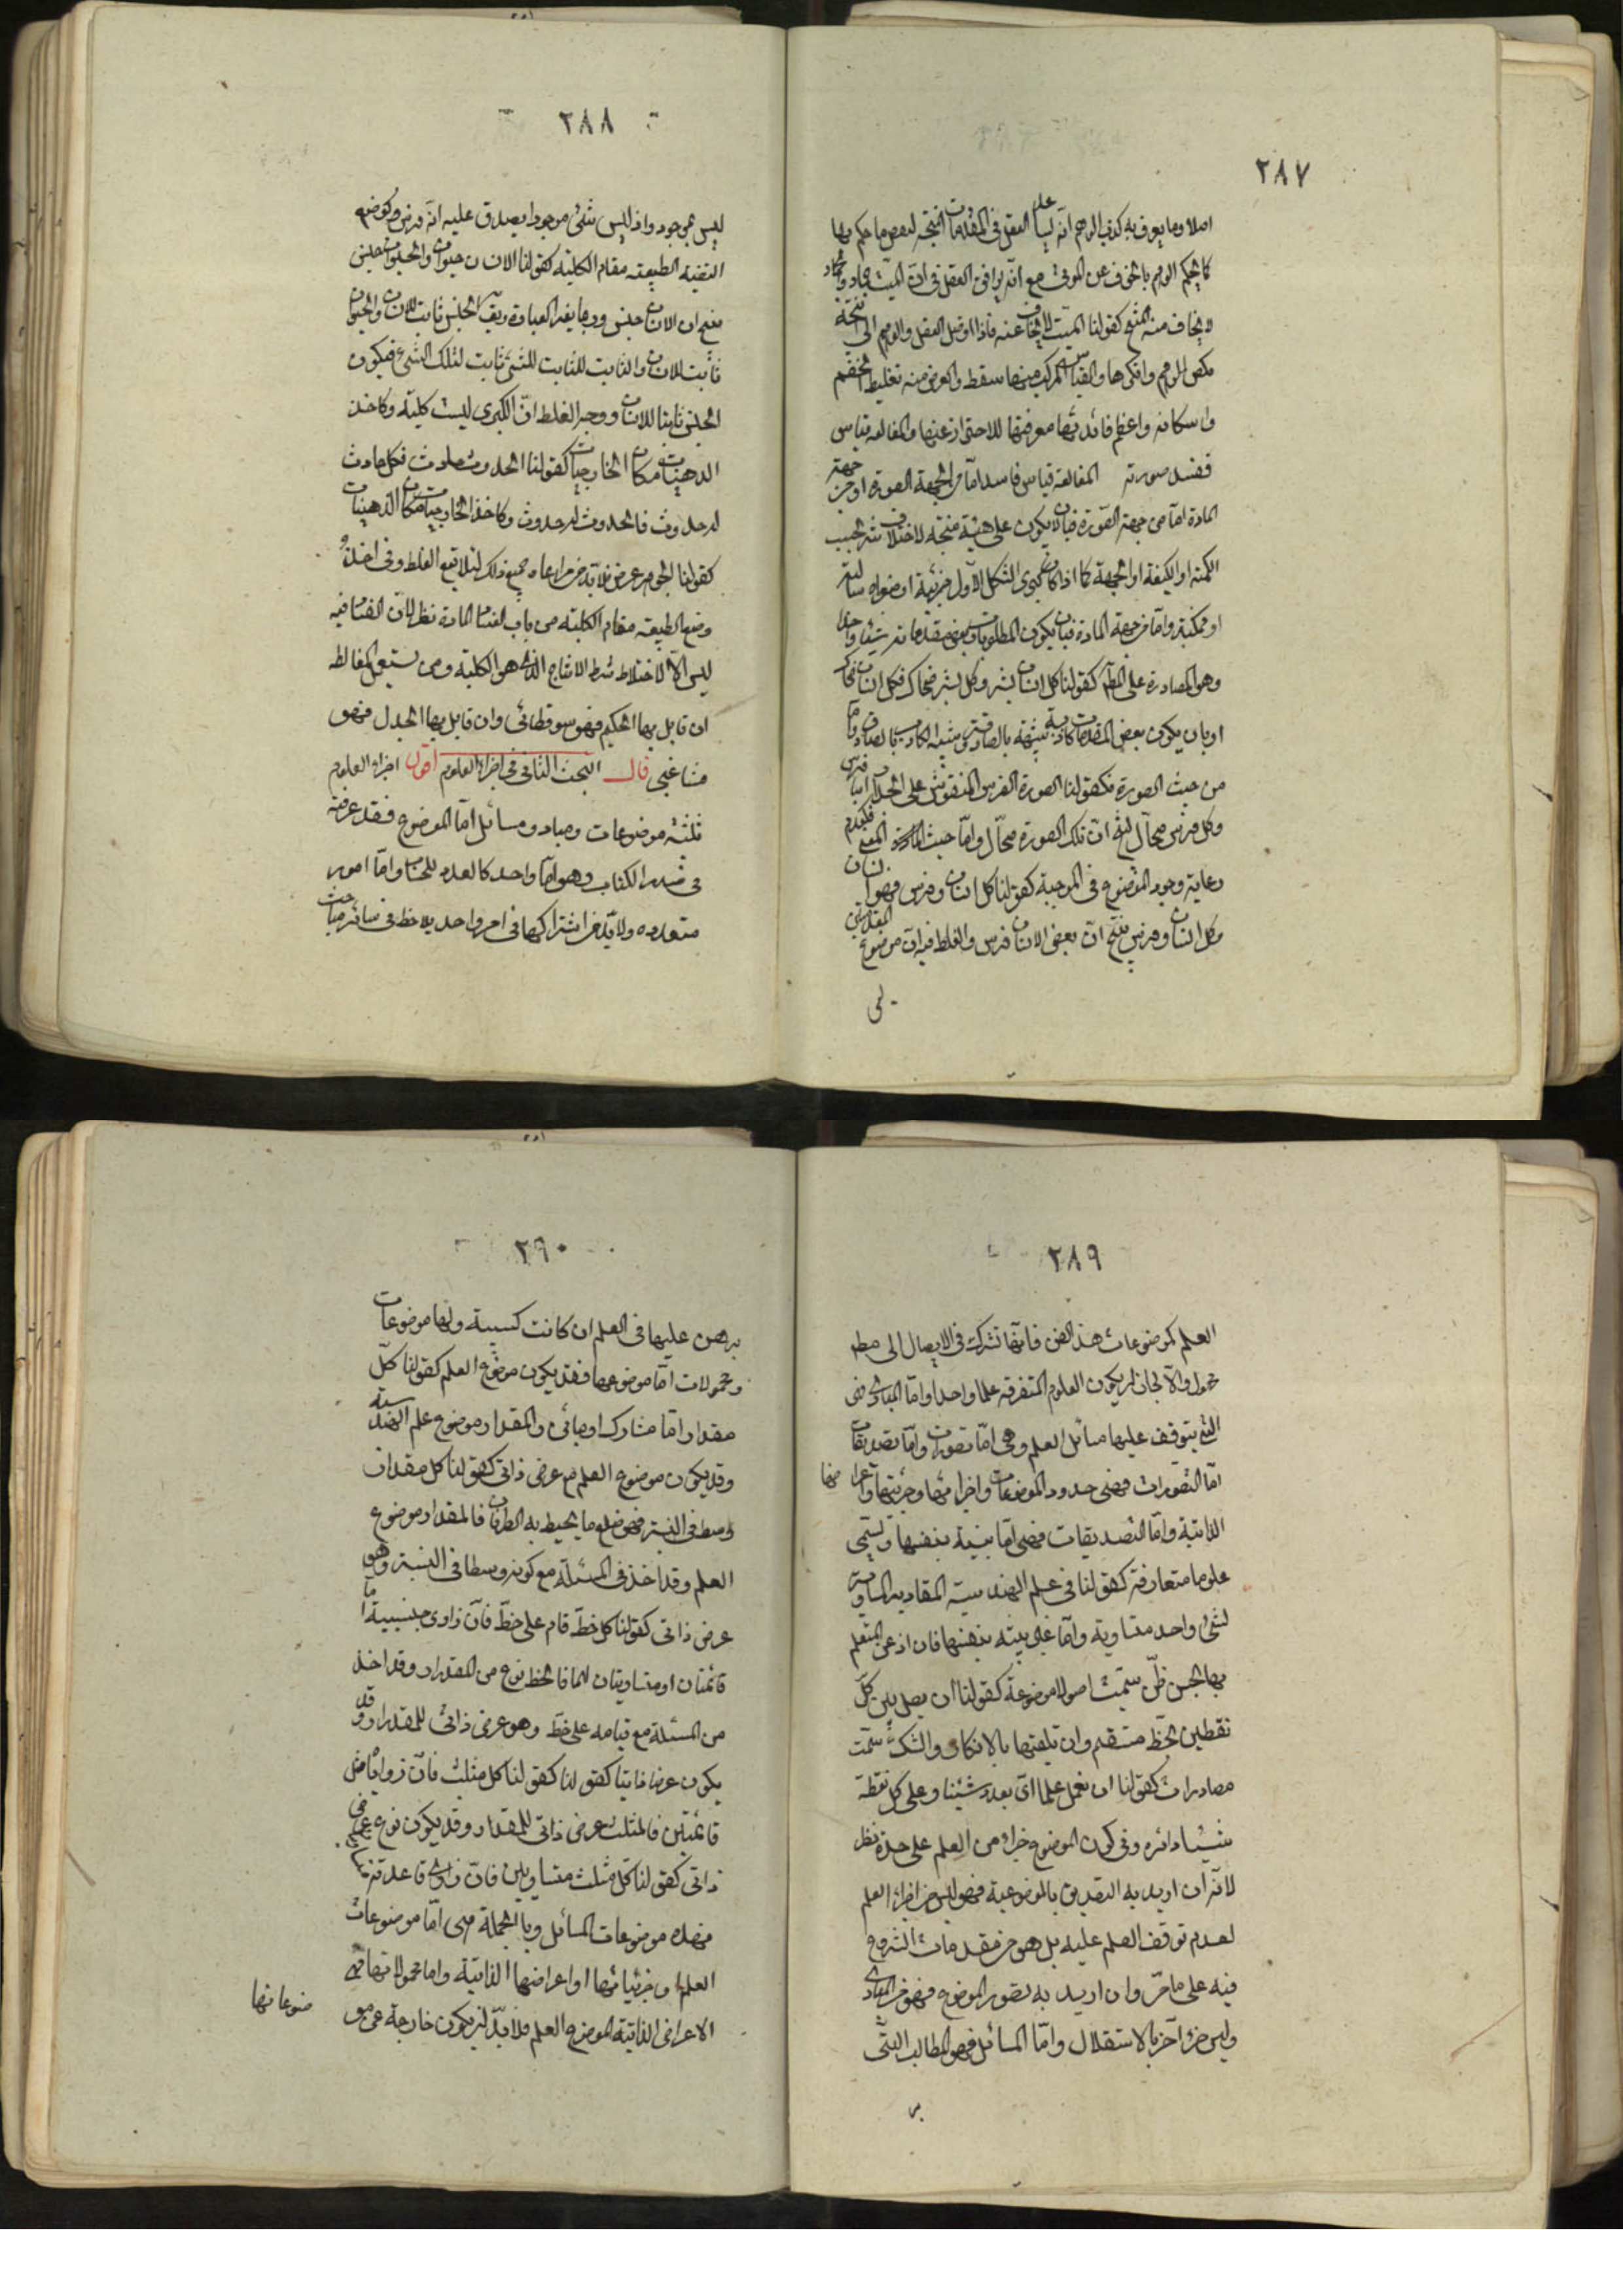 ٢٨٧
اصلا ومما يعرف به كذب الوهم انه يساعد العقل في المقدمات المنتجة لنقيض ما حكم بها
كما يحكم الوهم بالخوف عن الموتى مع انه يوافق العقل في ان الميت جماد والجماد
لا يخاف منه المنتج كقولنا الميت لا يخاف عنه فاذا وصل العقل والوهم الى النتيجة
نكص الوهم وانكرها والقياس المركب منها سفسطة والغرض منه تغليط الخصم
واسكاته واعظم فائدتها معرفتها للاحتراز عنها والمغالطة قياس
تفسد صورته المغالطة قياس فاسد اما من الجهة الصورة او من جهة
المادة اما من جهة الصورة فبان لا يكون على هيئة منتجة لاختلال شرط بحسب
الكمية او الكيفية او الجهة كما اذا كان كبرى الشكل الاول جزئية او صغراه سالبة
او ممكنة واما من جهة المادة فبان يكون المطلوب وبعض مقدماته شيئا واحدا
وهو المصادرة على المطلوب كقولنا كل انسان بشر وكل بشر ضحاك فكل انسان ضحاك
او بان يكون بعض المقدمات كاذبة شبيهة بالصادقة وشبه الكاذب بالصادق اما
من حيث الصورة فكقولنا الصورة الفرس المنقوش على الجدار انها فرس
وكل فرس صهال لينتج ان تلك الصورة صهال واما حيث المادة المعنى فكعدم
رعاية وجود الموضوع في الموجبة كقولنا كل انسان وفرس فهو انسان
وكل انسان وفرس ينتج ان بعض الانسان فرس والغلط فيه ان موضوع المقدمتين
ليس
٢٨٨
ليس بموجود واذ ليس شئ موجود ايصدق عليه انه فرس وكوضع
القضية الطبيعية مقام الكلية كقولنا الانسان حيوان والحيوان جنس
ينتج ان الانسان جنس وربما يغير العبارة ويق الجنس ثابت للانسان والحيوان
ثابت للانسان والثابت للثابت للشئ ثابت لذلك الشئ فيكون
الجنس ثابتا للانسان ووجه الغلط ان الكبرى ليست كلية وكاخذ
الذهنيات مكان الخارجيات كقولنا الحدوث حادث وكل حادث
له حدوث فالحدوث له حدوث وكاخذ الخارجيات مكان الذهنيات
كقولنا الجوهر عرض فلا بد من مراعاة جميع ذلك لئلا يقع الغلط وفي اخذ
وضع الطبيعية مقام الكلية من باب الفساد المادة نظر لان الفساد فيه
ليس الا لاختلاط شرط الانتاج الذي هو الكلية ومن يستعمل المغالطة
ان قابل بها الحكيم فهو سوفطائى وان قابل بها الجدل فهو
مشاغبى قال البحث الثانى في اجزاء العلوم اقول اجزاء العلوم
ثلثة موضوعات ومباد ومسائل اما الموضوع فقد عرفته
في صدر الكتاب وهو اما واحد كالعدد للحساب واما امور
متعدده ولا بد من اشتراكها في امر واحد يلاحظ في سائر مباحث
٢٨٩
العلم كموضوعات هذا الفن فانها تشترك في الايصال الى مطلوب
مجهول والا لجاز ان يكون العلوم المتفرقة علما واحدا واما المبادى فهى
التى يتوقف عليها مسائل العلم وهى اما تصورات واما تصديقات
اما التصورات فهى حدود الموضوعات واجزائها وجزئيتها واعراضها
الذاتية واما التصديقات فهى اما بينة بنفسها وتسمى
علوما متعارفة كقولنا في علم الهندسة المقادير المساوية
لشئ واحد متساوية واما غير بينه بنفسها فان اذعن المتعلم
بها بحسن ظن سميت اصولا موضوعة كقولنا ان يصل بين كل
نقطين بخط مستقيم وان تلقيها بالانكار والشك سميت
مصادرات كقولنا ان نعمل علما اى بعد شئنا وعلى كل نقطة
شئنا دائره وفى كون الموضوع جزاء من العلم على حدة نظر
لانه ان اريد به التصديق بالموضوعية فهو ليس من اجزاء العلم
لعدم توقف العلم عليه بل هو من مقدمات الشروع
فيه على ما مر وان اريد به تصور الموضوع فهو من المبادى
وليس جزءا آخر بالاستقلال واما المسائل فهو المطالب التى
٢٩٠
يرهن عليها في العلم ان كانت كسبية ولها موضوعات
ومحمولات اما موضوعها فقد يكون موضوع العلم كقولنا كل
مقدار اما مشارك او مبائن والمقدار موضوع علم الهندسة
وقد يكون موضوع العلم مع عرض ذاتى كقولنا كل مقدار
وسط في النسبة فهو ضلع ما يحيط به الطرفان فالمقدار موضوع
العلم وقد اخذ في المسئلة مع كونه وسطا في النسبة وهو
عرض ذاتى كقولنا كل خط قام على خط فان زاوى جنبيه اما
قائمتان او متساويتان لهما فالخط نوع من المقدار وقد اخذ
من المسئلة مع قيامه على خط وهو عرض ذاتى للمقدار وقد
يكون عرضا ذاتيا كقولنا كقولنا كل مثلث فان زواياه مثل
قائمتين فالمثلث عرض ذاتى للمقدار وقد يكون نوع عرض
ذاتى كقولنا كل مثلث متساويين فان زاوى قاعدته
فهذه موضوعات المسائل وبالجملة هى اما موضوعات
العلم او جزئياتها او اعراضها الذاتية واما محمولاتها فهى
الاعراض الذاتية لموضوع العلم فلا بد ان يكون خارجة عن مو
ضوعاتها